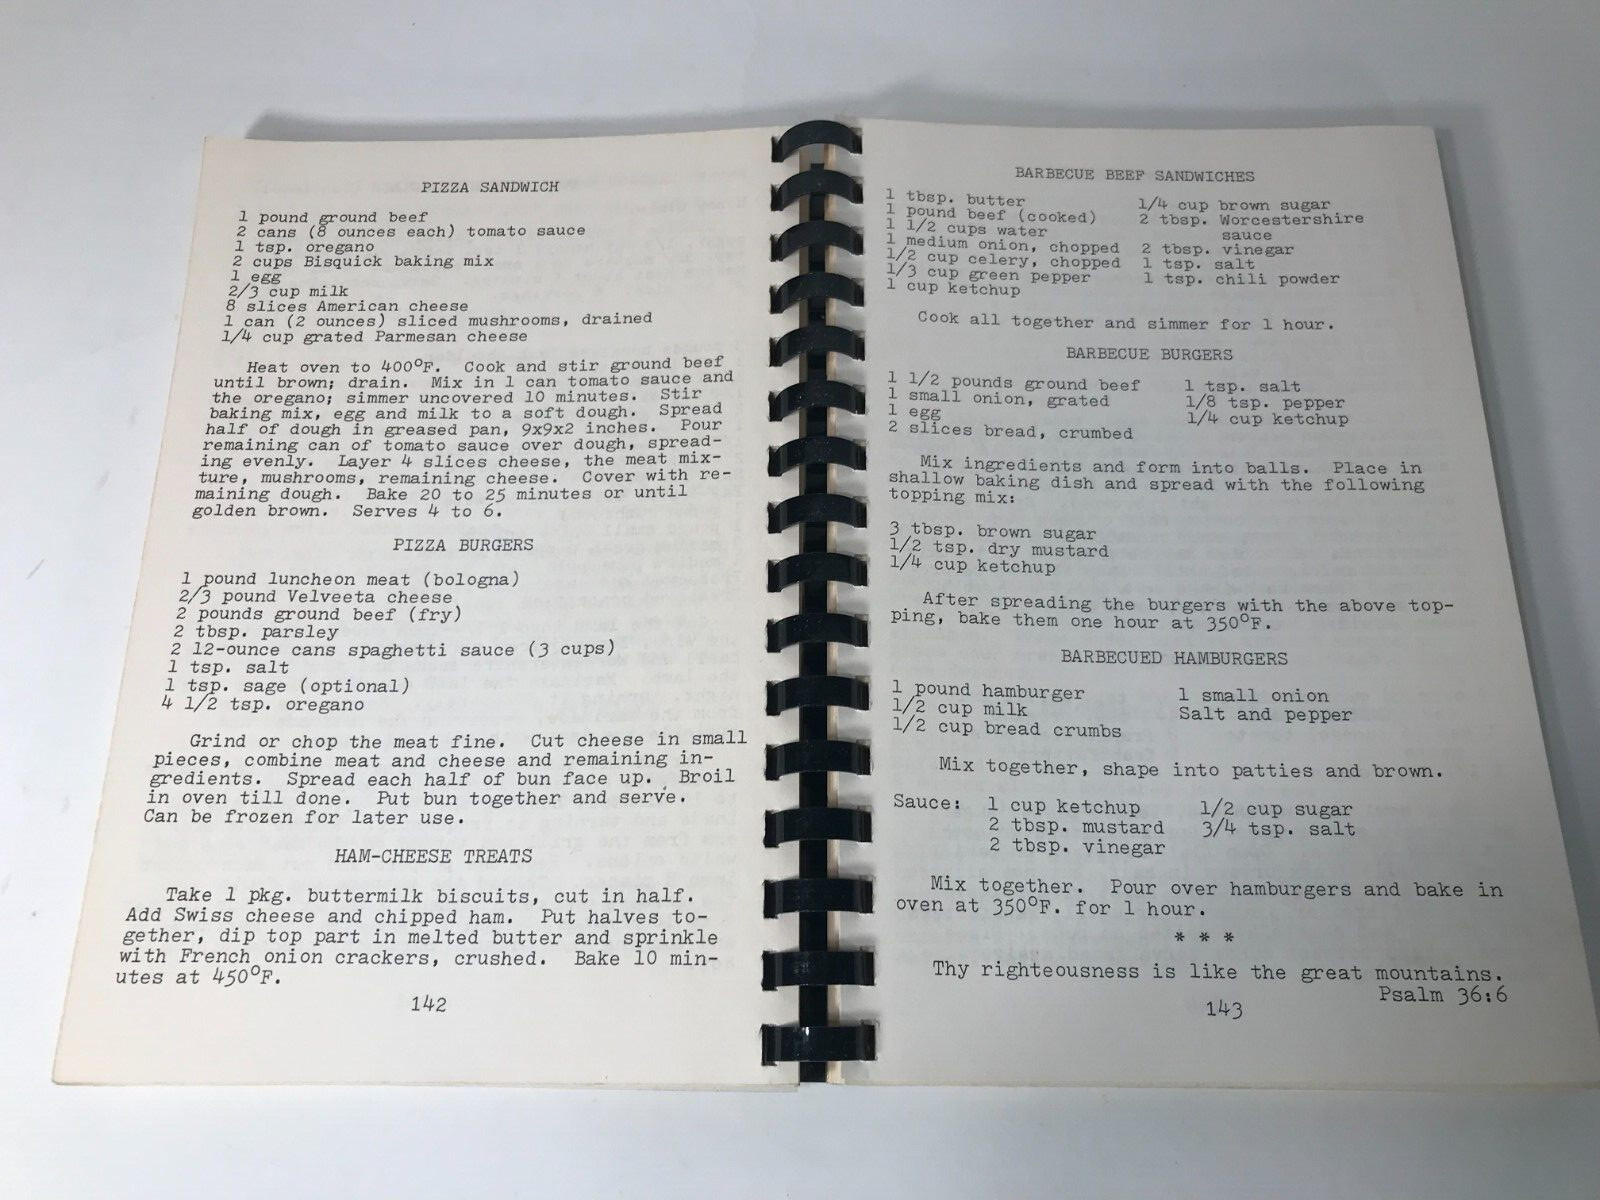 PIZZA SANDWICH
1 pound ground beef
2 cans (8 ounces each) tomato sauce
1 tsp. oregano
2 cups Bisquick baking mix
1 egg
2/3 cup milk
8 slices American cheese
1 can (2 ounces) sliced mushrooms, drained
1/4 cup grated Parmesan cheese
Heat oven to 400°F. Cook and stir ground beef
until brown; drain. Mix in 1 can tomato sauce and
the oregano; simmer uncovered 10 minutes. Stir
baking mix, egg and milk to a soft dough. Spread
half of dough in greased pan, 9x9x2 inches. Pour
remaining can of tomato sauce over dough, spread-
ing evenly. Layer 4 slices cheese, the meat mix-
ture, mushrooms, remaining cheese. Cover with re-
maining dough. Bake 20 to 25 minutes or until
golden brown. Serves 4 to 6.
PIZZA BURGERS
1 pound luncheon meat (bologna)
2/3 pound Velveeta cheese
2 pounds ground beef (fry)
2 tbsp. parsley
2 12-ounce cans spaghetti sauce (3 cups)
1 tsp. salt
1 tsp. sage (optional)
4 1/2 tsp. oregano
Grind or chop the meat fine. Cut cheese in small
pieces, combine meat and cheese and remaining in-
gredients. Spread each half of bun face up. Broil
in oven till done. Put bun together and serve.
Can be frozen for later use.
HAM-CHEESE TREATS
Take 1 pkg. buttermilk biscuits, cut in half.
Add Swiss cheese and chipped ham. Put halves to-
gether, dip top part in melted butter and sprinkle
with French onion crackers, crushed. Bake 10 min-
utes at 450°F.
142
BARBECUE BEEF SANDWICHES
1 tbsp. butter
1 pound beef (cooked)
1 1/2 cups water
1 medium onion, chopped
1/2 cup celery, chopped
1/3 cup green pepper
1 cup ketchup
1/4 cup brown sugar
2 tbsp. Worcestershire
sauce
2 tbsp. vinegar
1 tsp. salt
1 tsp. chili powder
Cook all together and simmer for 1 hour.
BARBECUE BURGERS
1 1/2 pounds ground beef
1 small onion, grated
1 egg
2 slices bread, crumbed
1 tsp. salt
1/8 tsp. pepper
1/4 cup ketchup
Mix ingredients and form into balls. Place in
shallow baking dish and spread with the following
topping mix:
3 tbsp. brown sugar
1/2 tsp. dry mustard
1/4 cup ketchup
After spreading the burgers with the above top-
ping, bake them one hour at 350°F.
BARBECUED HAMBURGERS
1 pound hamburger
1/2 cup milk
1/2 cup bread crumbs
1 small onion
Salt and pepper
Mix together, shape into patties and brown.
Sauce: 1 cup ketchup
2 tbsp. mustard
2 tbsp. vinegar
1/2 cup sugar
3/4 tsp. salt
Mix together. Pour over hamburgers and bake in
oven at 350°F. for 1 hour.
* * *
Thy righteousness is like the great mountains.
Psalm 36:6
143